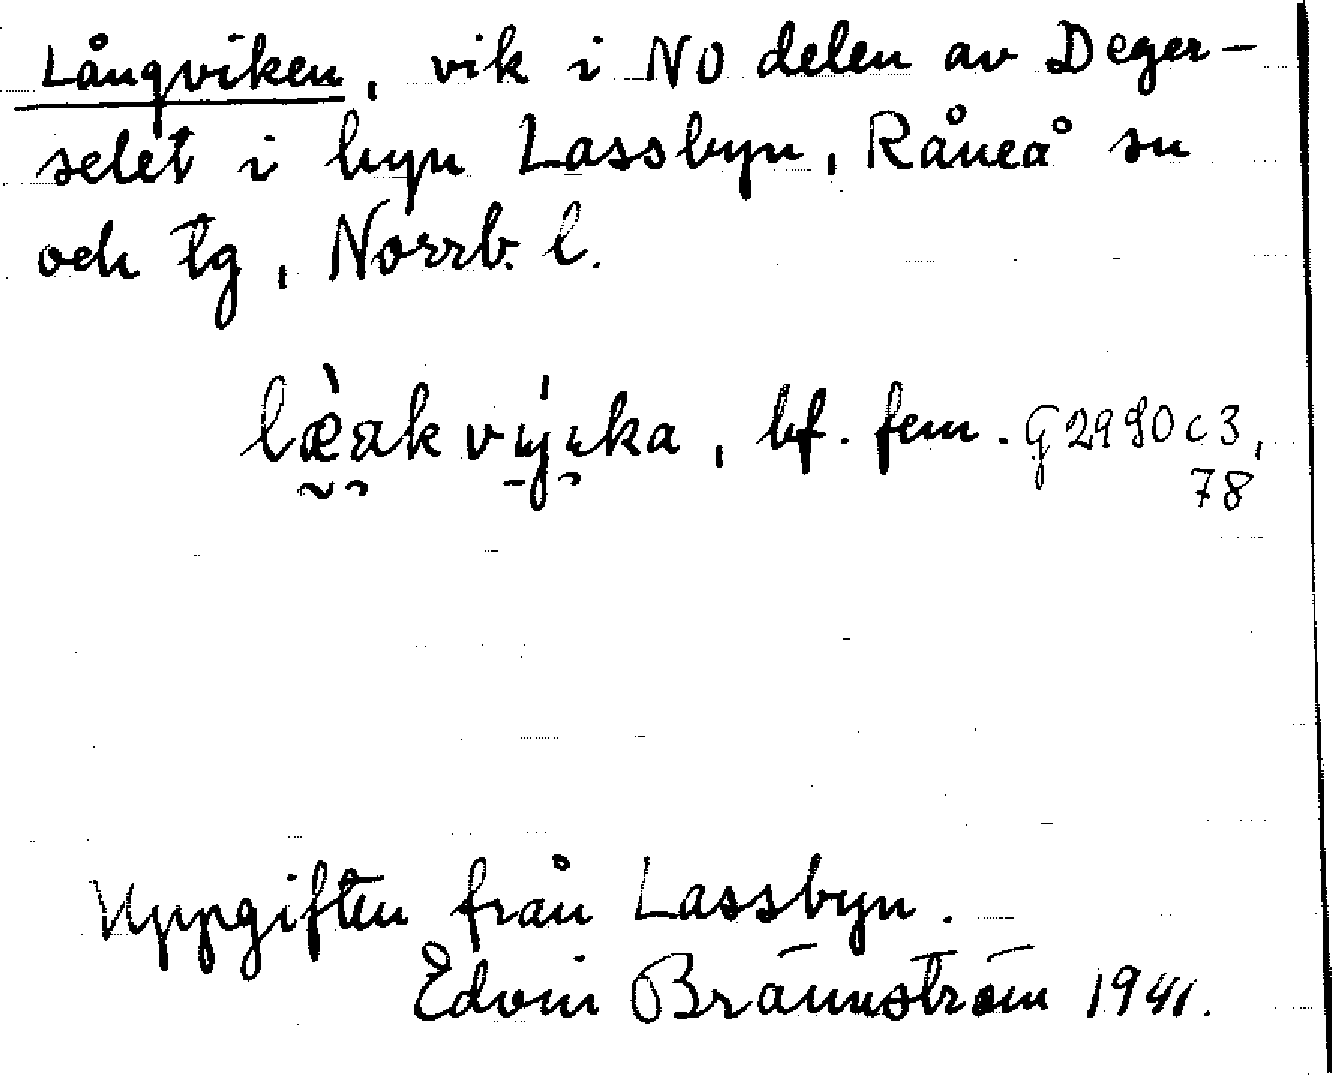 Långviken, vik i NO delen av Deger-
selet i byn Lassbyn, Råneå sn
och tg, Norrb. l.
bf. fem. G2990c3,
78
Uppgiften från Lassbyn.
Edvin Brännström 1941.